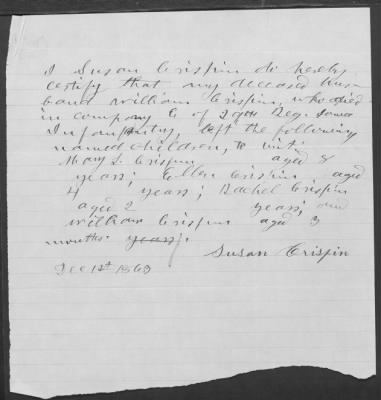 I Susan Crispin do hereby
certify that my deceased hus-
band William Crispin, who died
in company C of 29th Reg. Iowa
Infantry, left the following
named children, to wit:
Mary S. Crispin aged 8
years; Ellen Crispin aged
4 years; Rachel Crispin
aged 2 years; and
William Crispin aged 3
months. years;
Susan Crispin
Dec 1st 1863